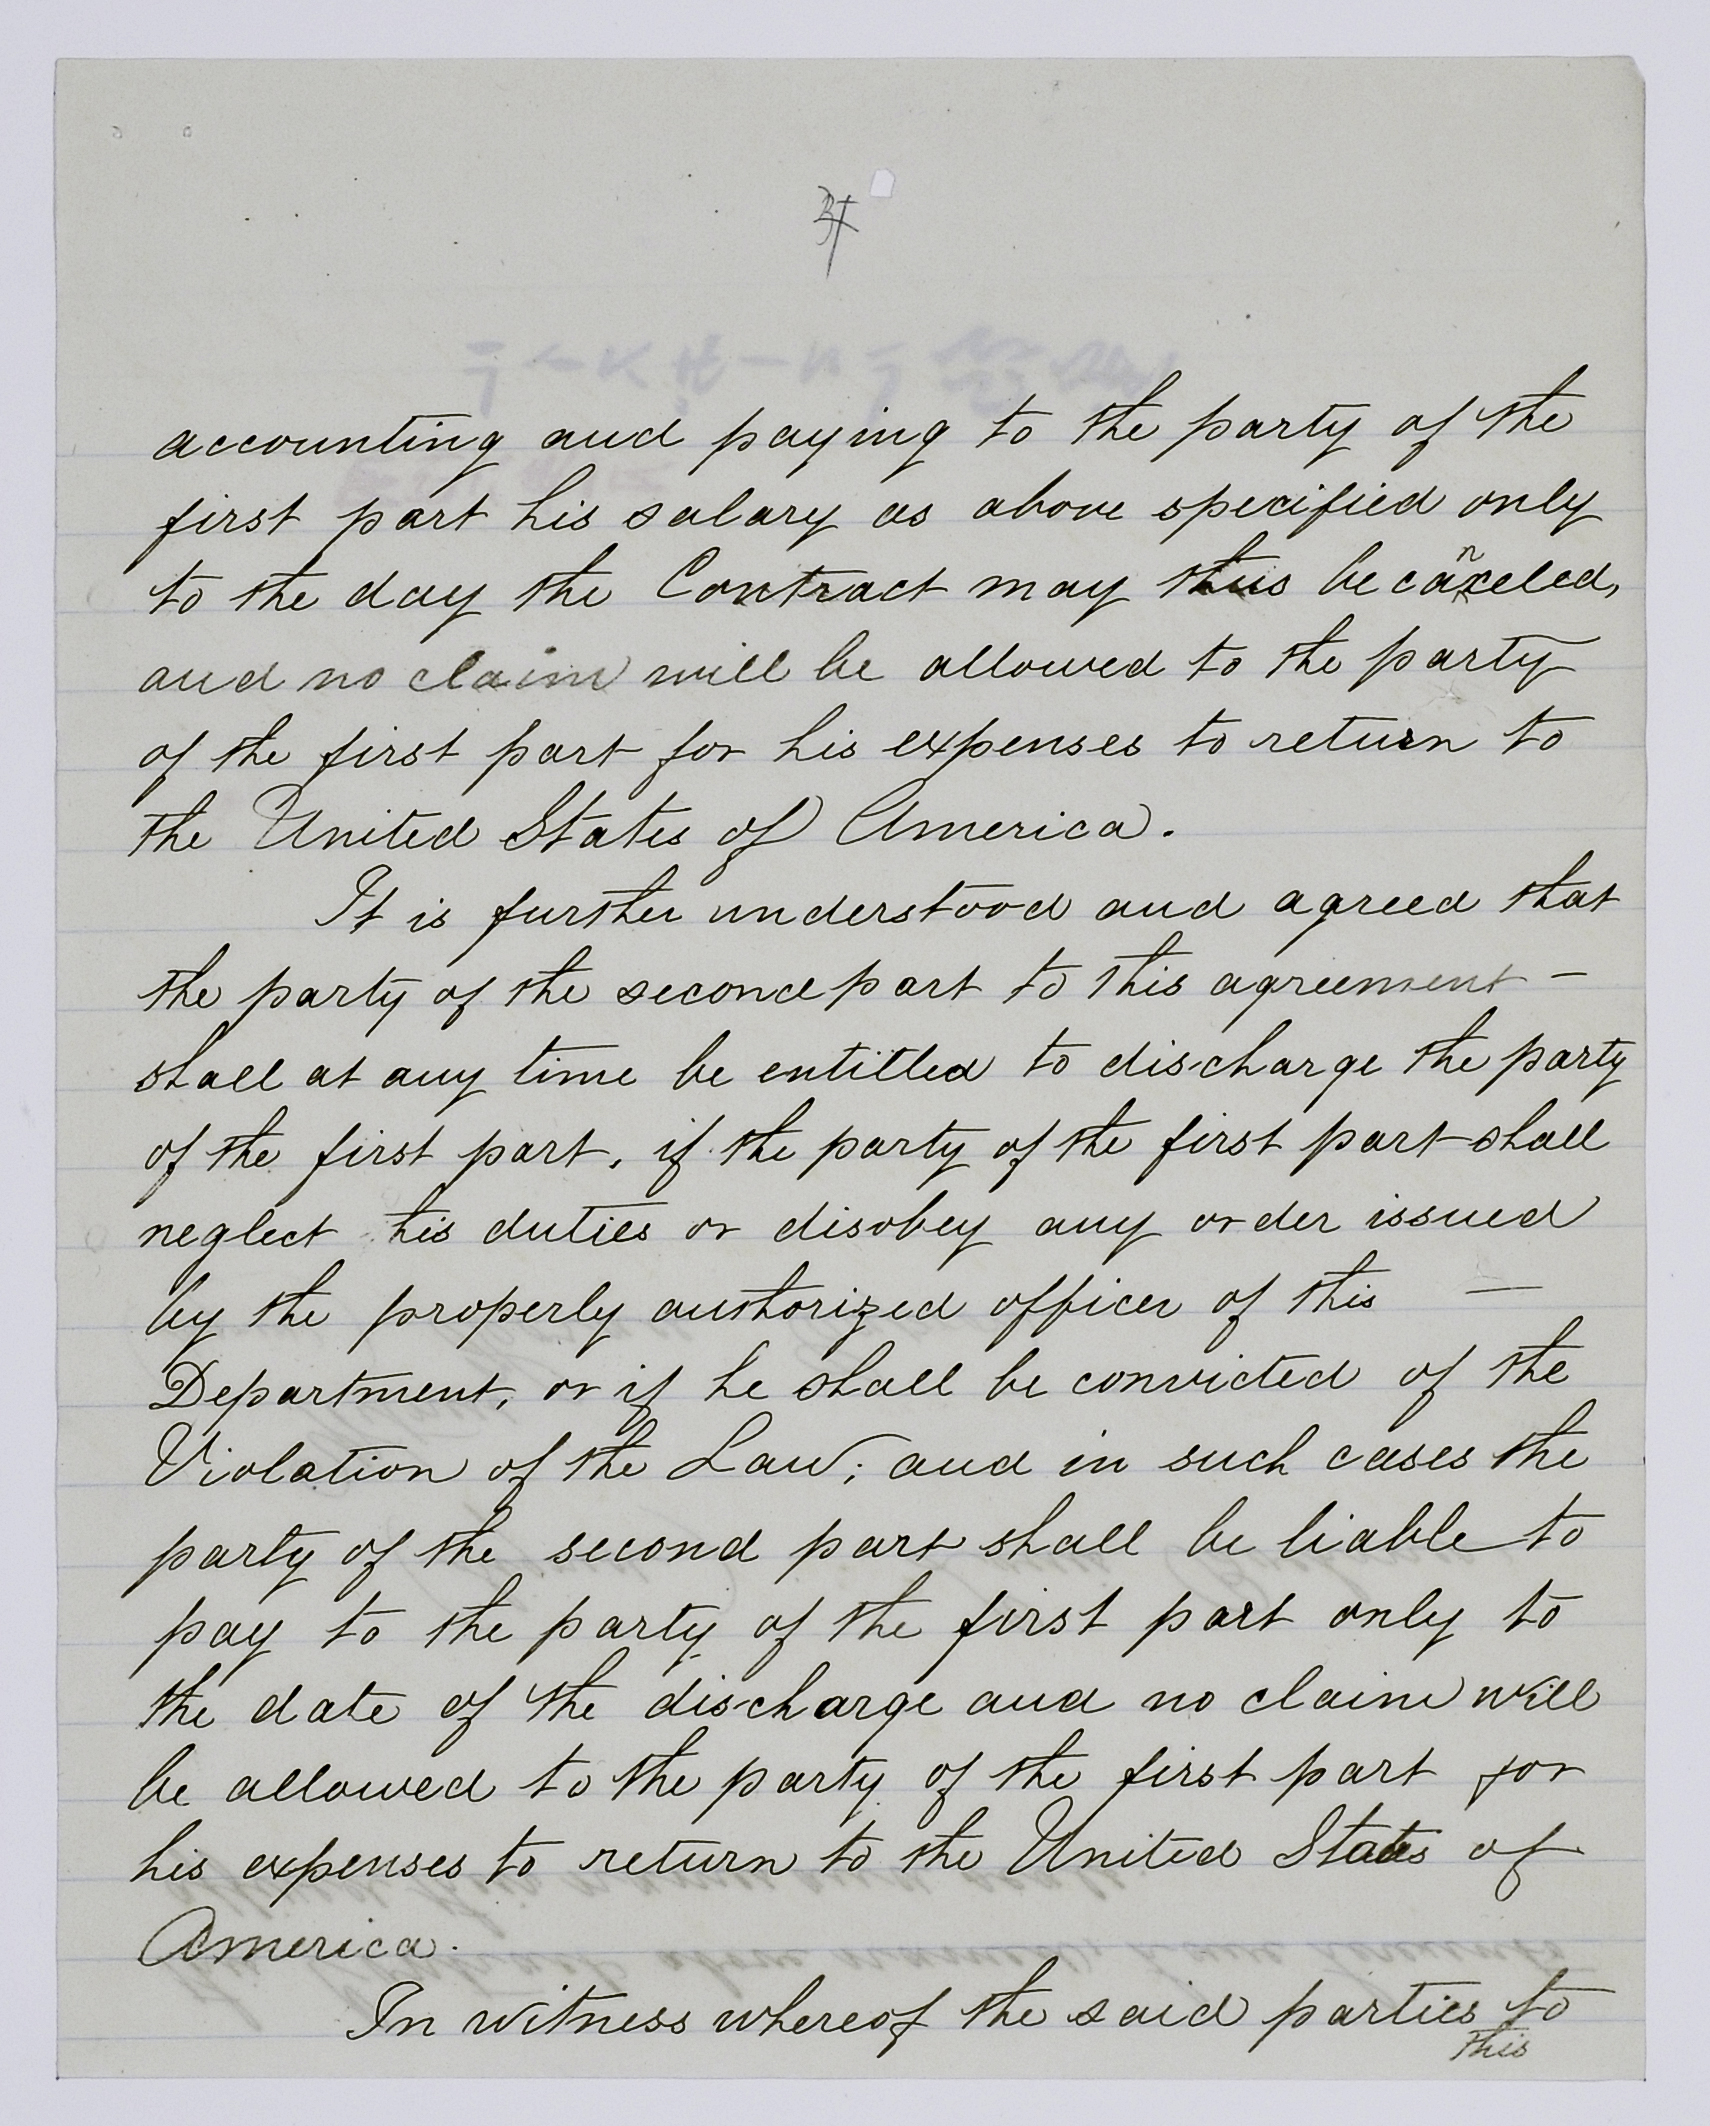 accounting and paying to the party of the
first part his salary as above specified only
to the day the Contract may thus be canceled,
and no claim will be allowed to the party
of the first part for his expenses to return to
the United States of America.
It is further understood and agreed that
the party of the second part to this agreement –
shall at any time be entitled to discharge the party
of the first part, if the party of the first part shall
neglect his duties or disobey any order issued
by the properly authorized officer of this —
Department, or if he shall be convicted of the
Violation of the Law; and in such cases the
party of the second part shall be liable to
pay to the party of the first part only to
the date of the discharge and no claim will
be allowed to the party of the first part for
his expenses to return to the United States of
America.
In witness whereof the said parties to
this